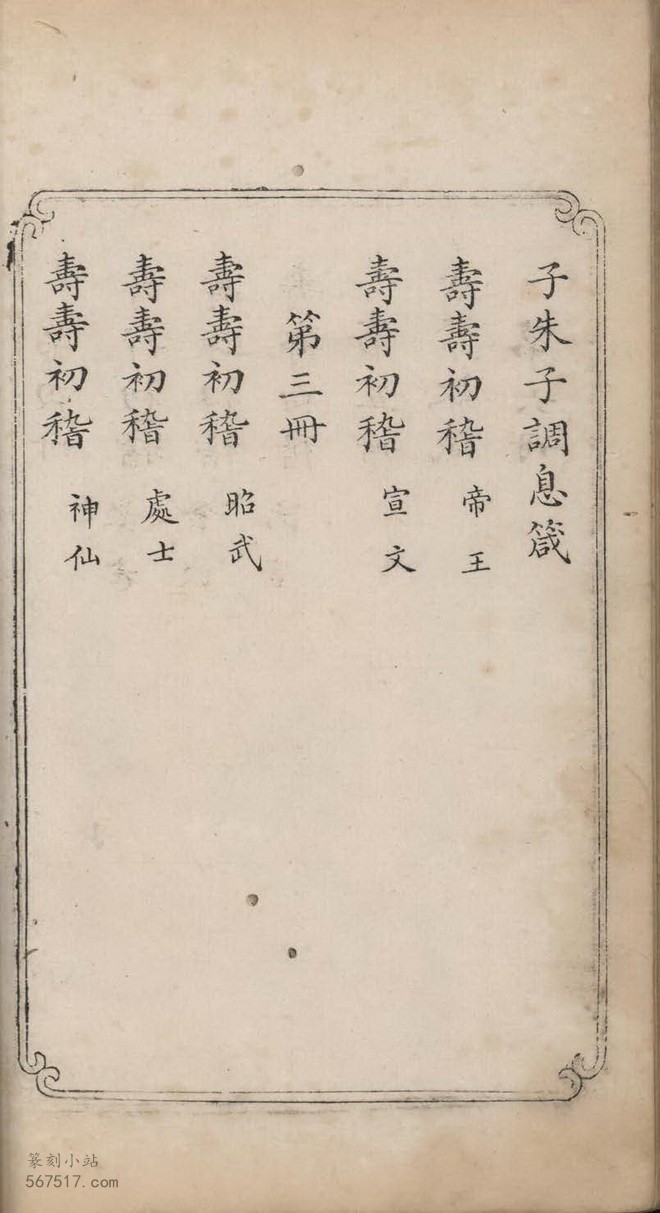 子朱子調息箴
壽壽初稽 帝王
壽壽初稽 宣文
第三冊
壽壽初稽 昭武
壽壽初稽 處士
壽壽初稽 神仙
篆刻小站
567517.com